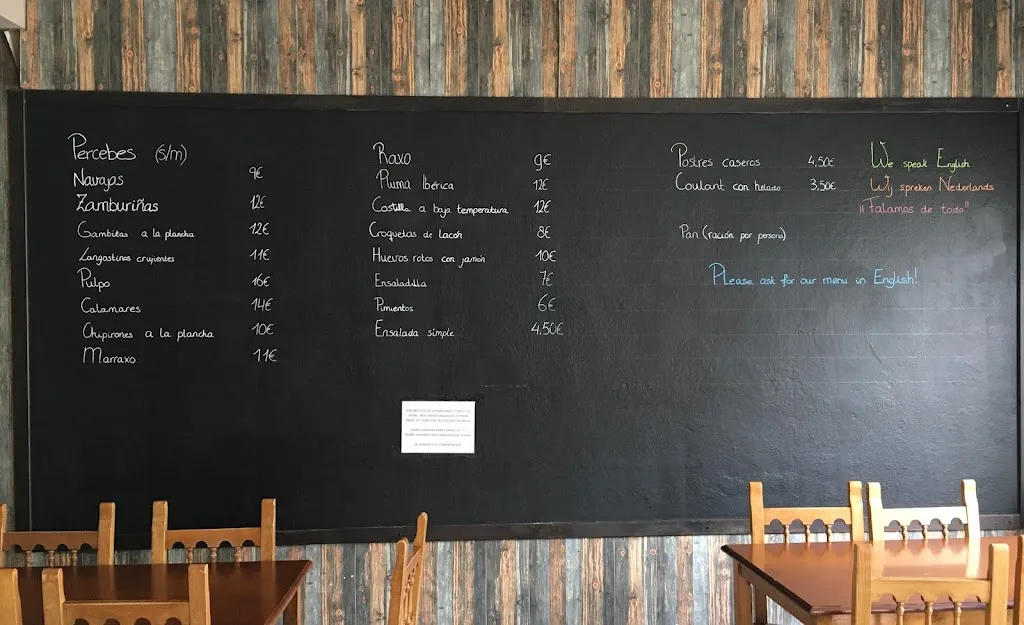 Percebes (s/m)
Navajas 9€
Zamburiñas 12€
Gambitas a la plancha 12€
Langostinos crujientes 11€
Pulpo 16€
Calamares 14€
Chipirones a la plancha 10€
Marraxo 11€
Raxo 9€
Pluma Ibérica 12€
Costilla a baja temperatura 12€
Croquetas de Lacón 8€
Huevos rotos con jamón 10€
Ensaladilla 7€
Pimientos 6€
Ensalada simple 4,50€
Postres caseros 4,50€
Coulant con helado 3,50€
Pan (ración por persona)
We speak English
Wij spreken Nederlands
¡¡Falamos de todo!!
Please ask for our menu in English!